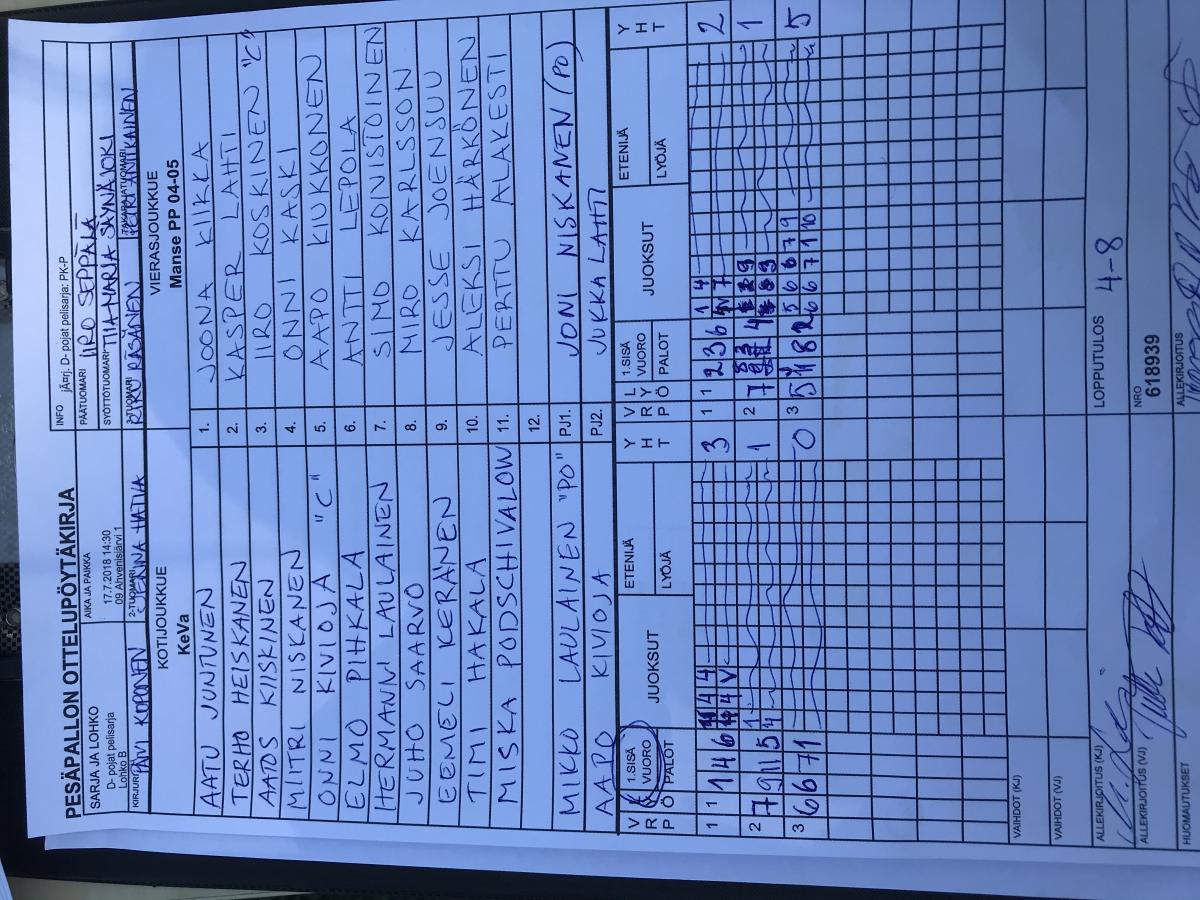 PESÄPALLON OTTELUPÖYTÄKIRJA
SARJA JA LOHKO
D- pojat pelisarja
Lohko B
AIKA JA PAIKKA
17.7.2018 14:30
09 Ahvenisjärvi 1
INFO jÄ¤rj. D- pojat pelisarja: PK-P
PÄÄTUOMARI IIRO SEPPÄLÄ
SYÖTTÖTUOMARI TIIA-MARIA SÄYNÄJOKI
KIRJURI PÄIVI KOPONEN
2-TUOMARI
3-TUOMARI RIKU RÄSÄNEN
TAKARAJATUOMARI
KOTIJOUKKUE
KeVa
VIERASJOUKKUE
Manse PP 04-05
AATU JUNTUNEN 1. JOONA KIIKKA
TERHO HEISKANEN 2. KASPER LAHTI
AATOS KIISKINEN 3. IIRO KOSKINEN "C"
MITRI NISKANEN 4. ONNI KASKI
ONNI KIVIOJA "C" 5. AAPO KIUKKONEN
ELMO PIHKALA 6. ANTTI LEPOLA
HERMANNI LAULAINEN 7. SIMO KOIVISTOINEN
JUHO SAARVO 8. MIRO KARLSSON
EEMELI KERANEN 9. JESSE JOENSUU
TIMI HAKALA 10. ALEKSI HÄRKÖNEN
MISKA PODSCHIVALOW 11. PERTTU ALAKESTI
12.
MIKKO LAULAINEN "PO" PJ1. JONI NISKANEN (PO)
AAPO KIVIOJA PJ2. JUKKA LAHTI
V R P L Y Ö 1.SISÄ VUORO PALOT JUOKSUT ETENIJÄ LYÖJÄ Y H T V R P L Y Ö 1.SISÄ VUORO PALOT JUOKSUT ETENIJÄ LYÖJÄ Y H T
1 1 1 4 6 4 4 3 1 1 2 3 6 1 4 2
4 V 7
2 7 9 11 5 1 1 2 7 4 9 1
4 9
3 6 6 7 1 0 3 5 1 8 2 5 6 6 7 9 5
6 6 7 1 10
VAIHDOT (KJ)
VAIHDOT (VJ)
ALLEKIRJOITUS (KJ)
LOPPUTULOS 4-8
ALLEKIRJOITUS (VJ)
NRO
618939
HUOMAUTUKSET
ALLEKIRJOITUS